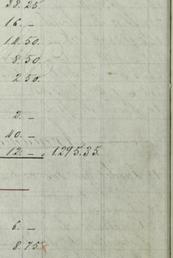 38.25.
16. –
14.50.
8.50.
2.50.
2. –
40. –
12. – 1295.35.
6. –
8.75